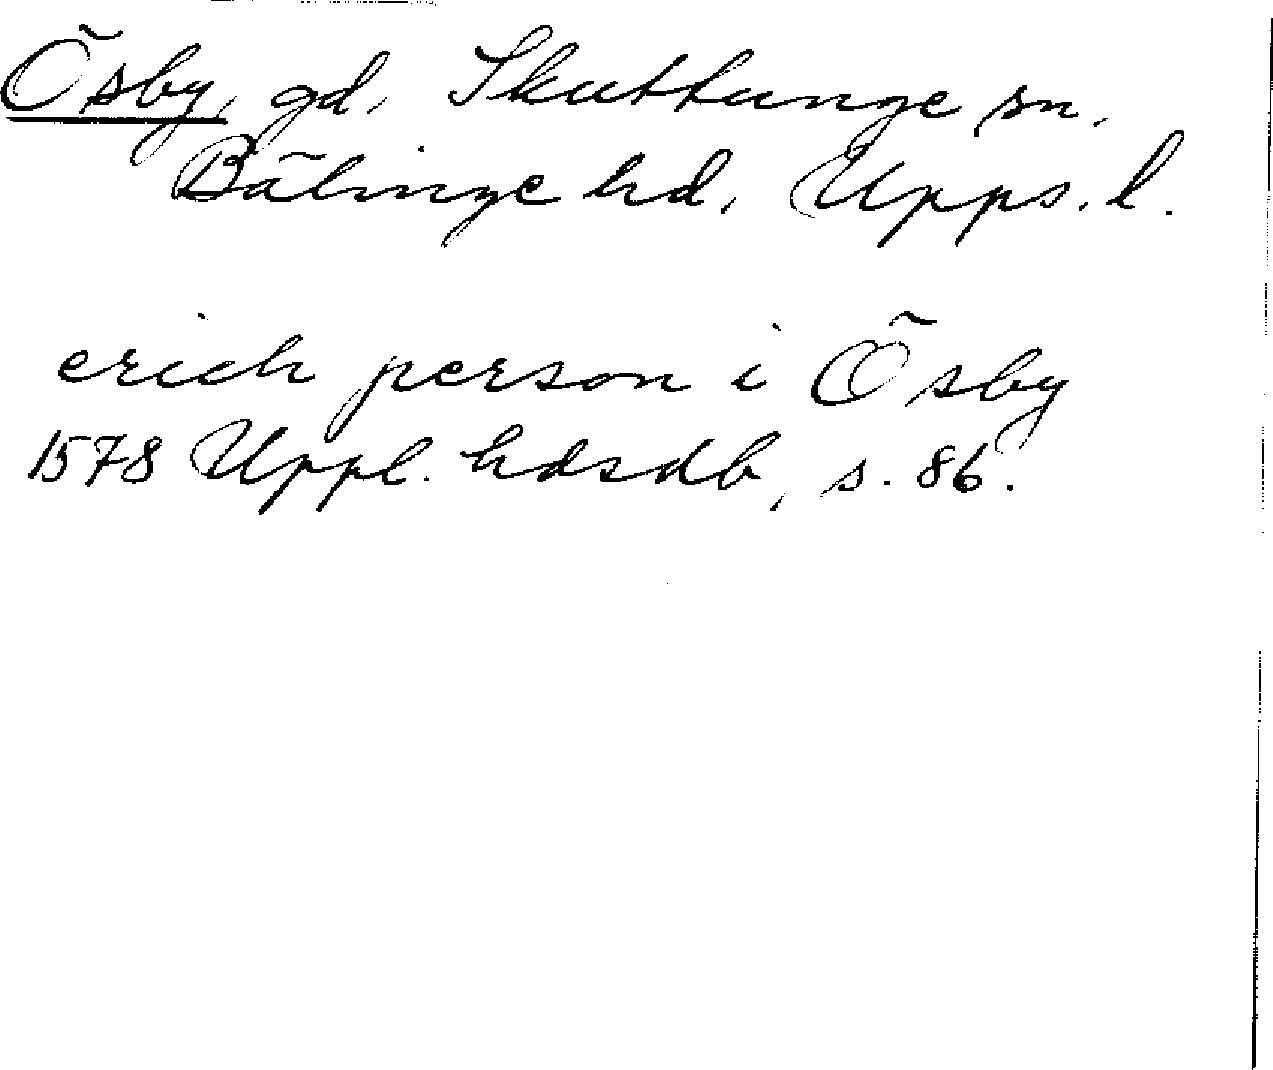 Ösby, gd, Skuttunge sn.
Bälinge hd, Upps. l.
erich person i Ösby
1578 Uppl. hdsdb, s. 86.